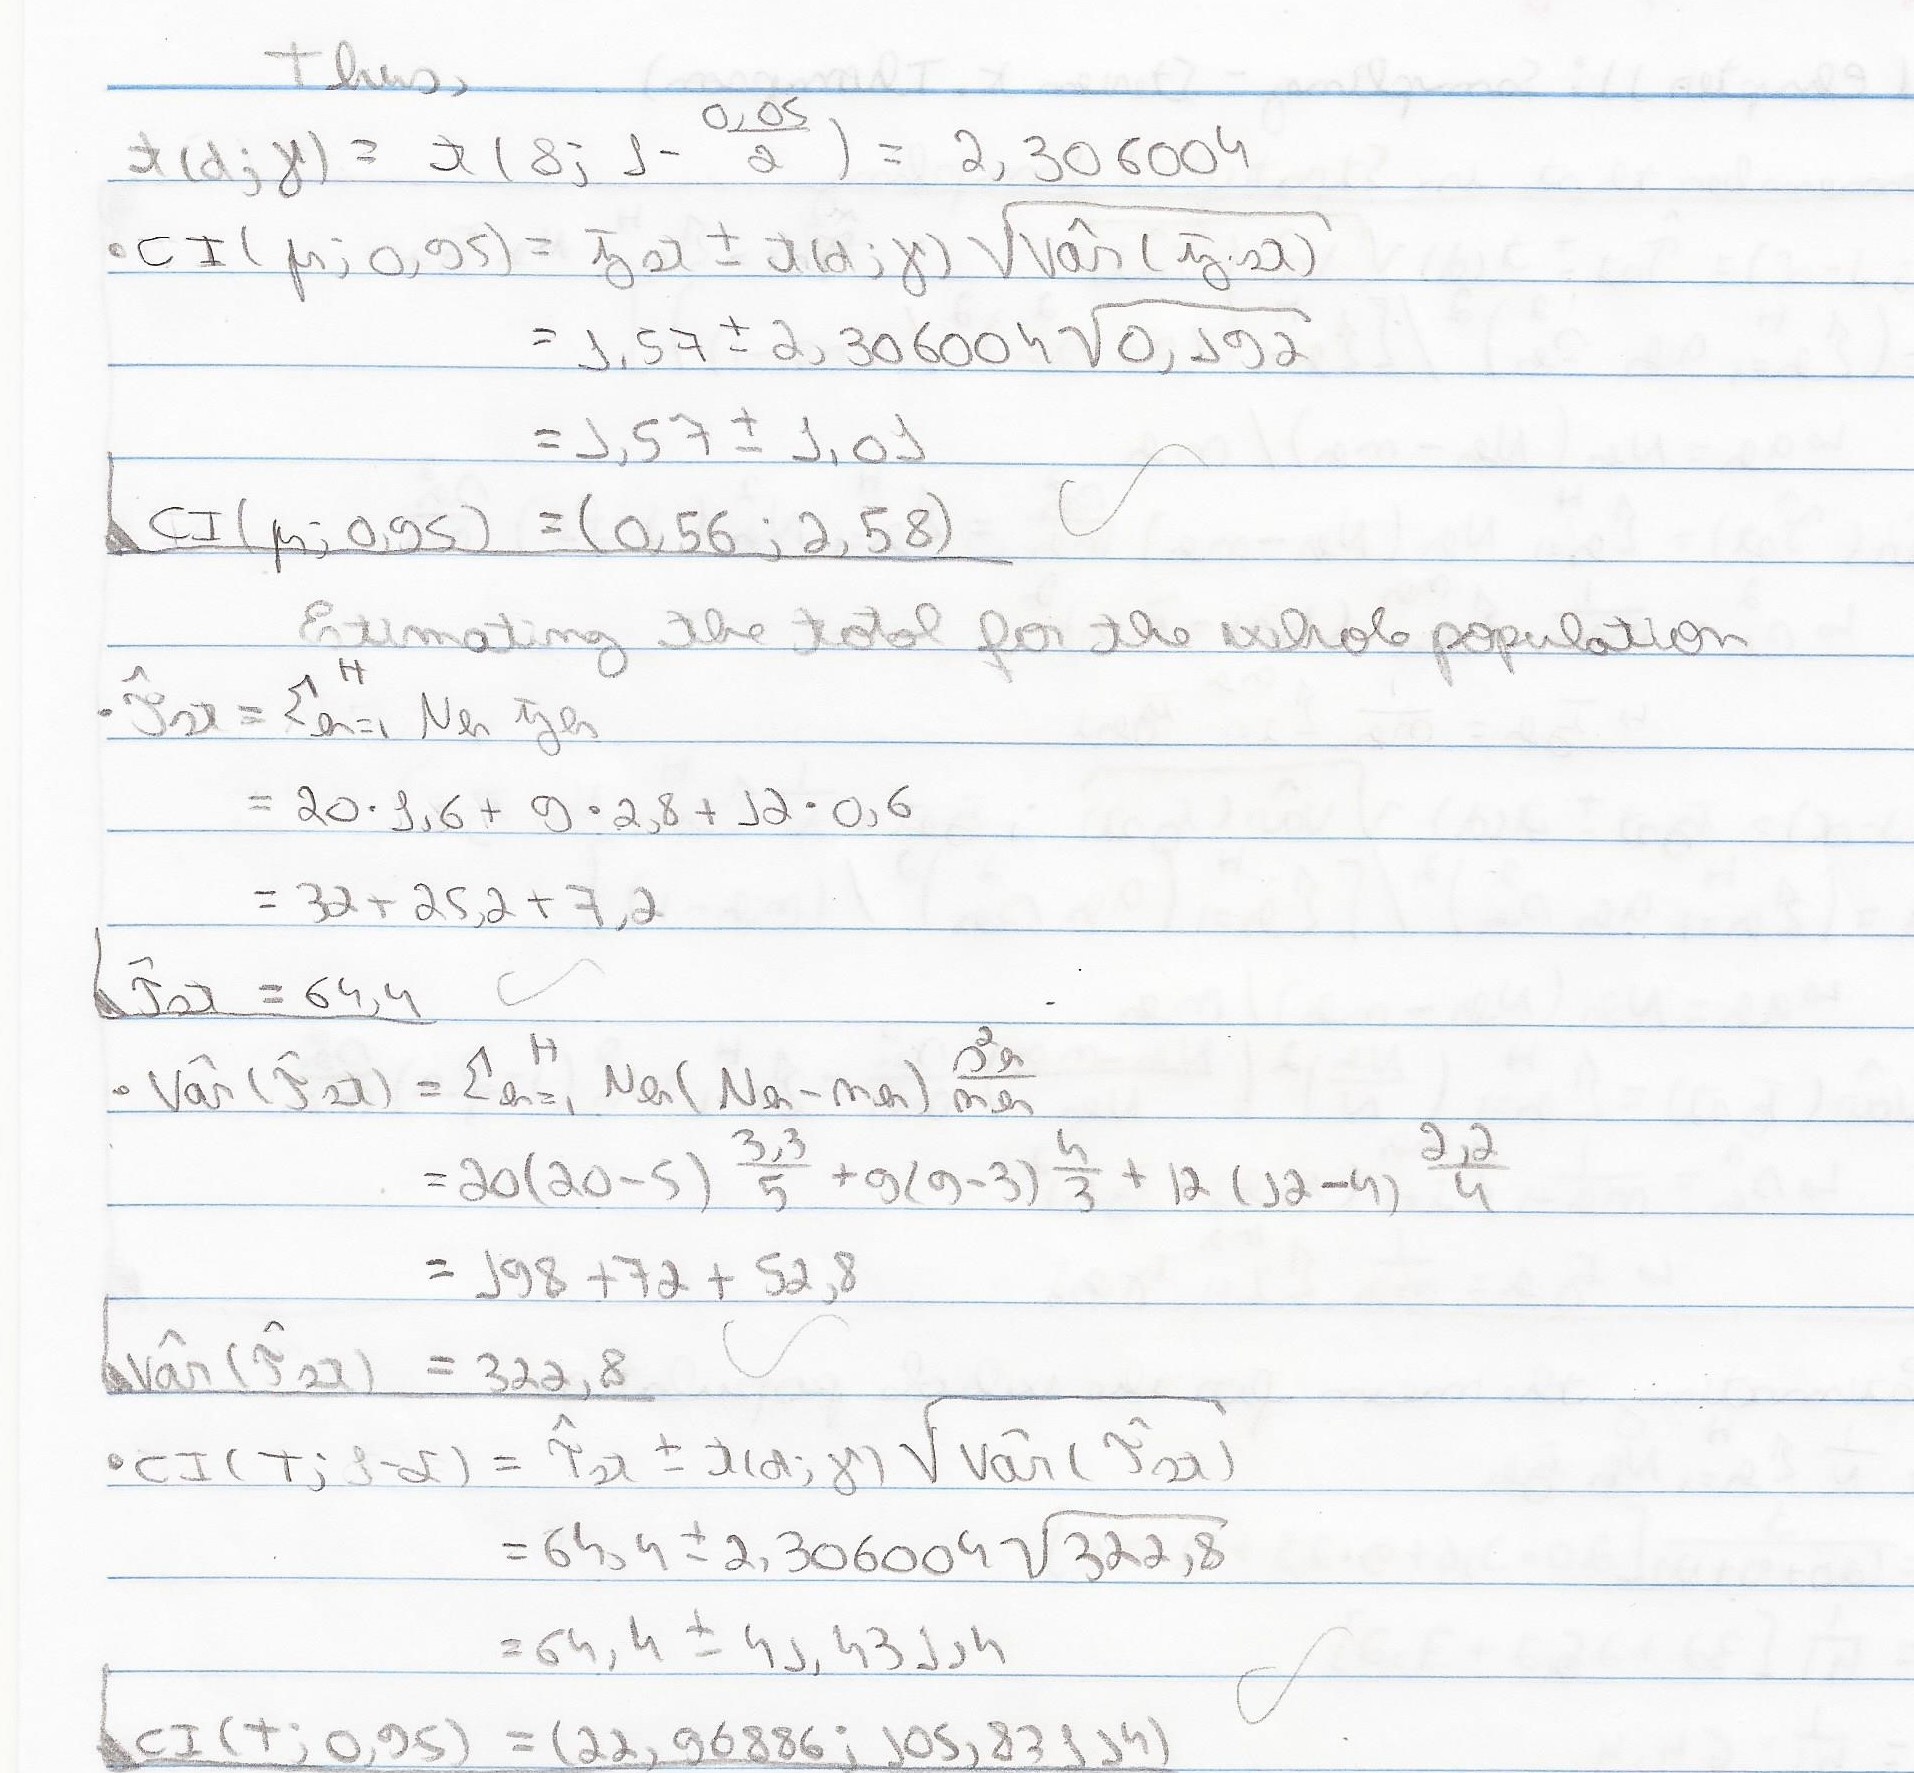 Thus,
t(d; γ) = t(8; 1 - 0,05/2) = 2,306004
• CI(μ; 0,95) = ȳst ± t(d; γ) √Vâr(ȳst)
= 1,57 ± 2,306004 √0,192
= 1,57 ± 1,01
CI(μ; 0,95) = (0,56; 2,58)
Estimating the total for the whole population
• T̂st = Σh=1^H Nh ȳh
= 20·1,6 + 9·2,8 + 12·0,6
= 32 + 25,2 + 7,2
T̂st = 64,4
• Vâr(T̂st) = Σh=1^H Nh(Nh - nh) s²h/nh
= 20(20-5) 3,3/5 + 9(9-3) 4/3 + 12(12-4) 2,2/4
= 198 + 72 + 52,8
Vâr(T̂st) = 322,8
• CI(T; 1-α) = T̂st ± t(d; γ) √Vâr(T̂st)
= 64,4 ± 2,306004 √322,8
= 64,4 ± 41,43114
CI(T; 0,95) = (22,96886; 105,83114)